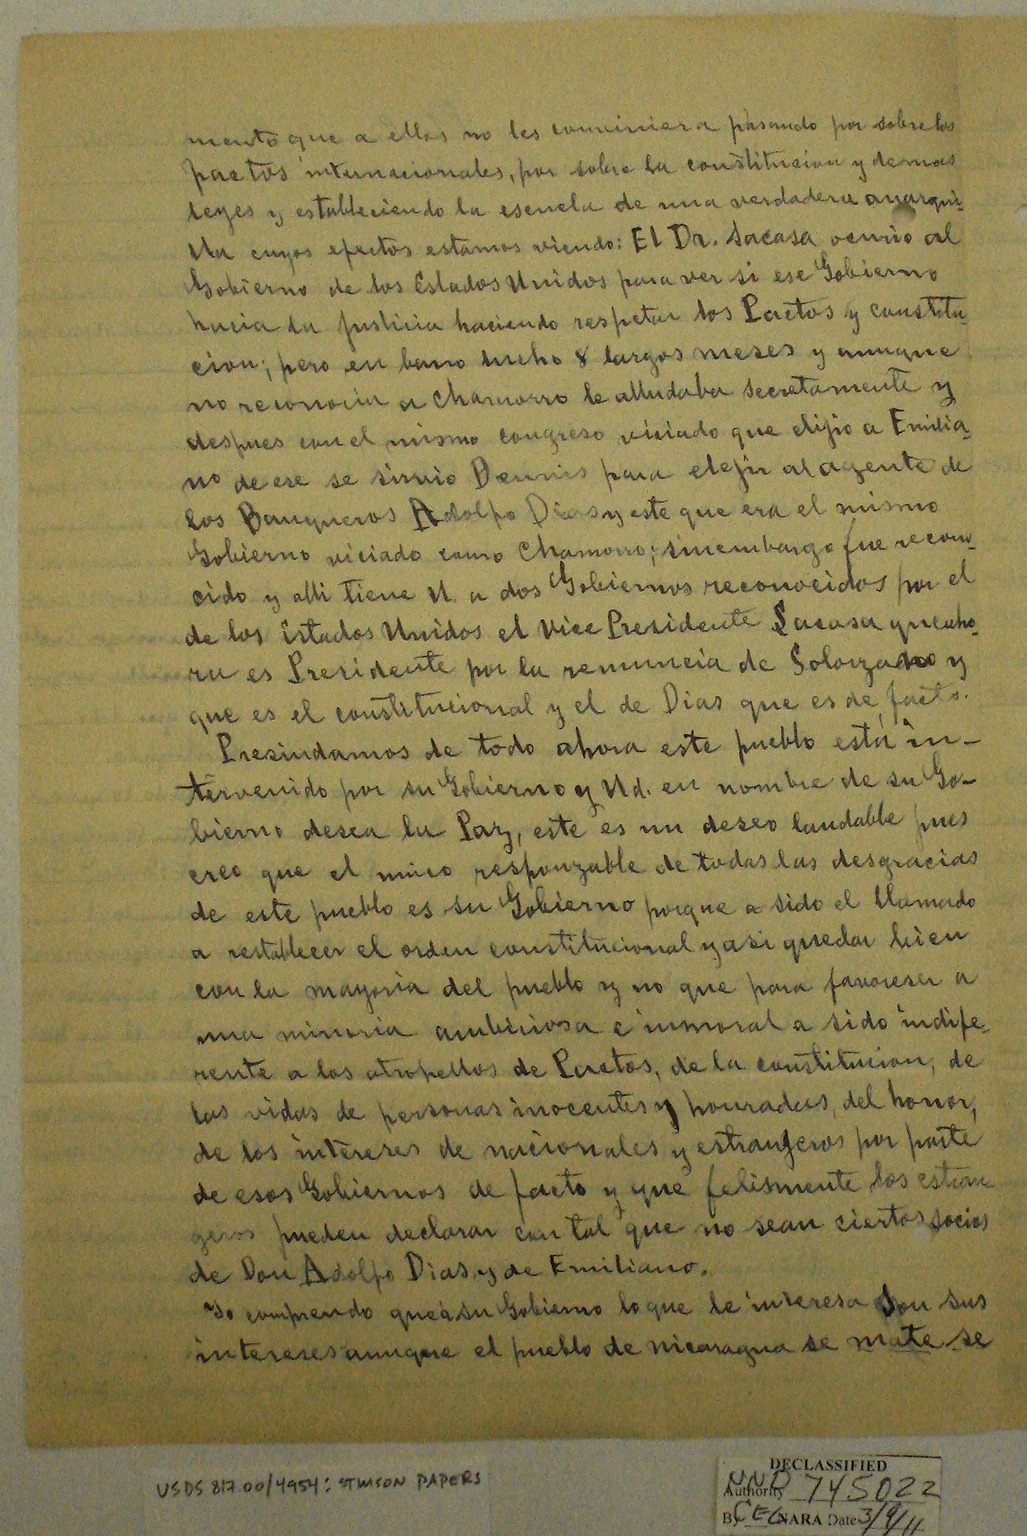 mento que a ellos no les conviniera pasando por sobre los
pactos internacionales, por sobre la constitucion y demas
leyes y estableciendo la escuela de una verdadera anarqui-
lla cuyos efectos estamos viendo: El Dr. Sacasa ocurrio al
Gobierno de los Estados Unidos para ver si ese Gobierno
hacia la justicia haciendo respetar los Pactos y constitu-
cion; pero en bano lucho 8 largos meses y aunque
no reconocia a Chamorro le alludaba secretamente y
despues con el mismo congreso viciado que elijio a Emilia-
no de ese se sirvio Dennis para elejir al agente de
los Banqueros Adolfo Dias y este que era el mismo
Gobierno viciado como Chamorro; sinembargo fue recono-
cido y alli tiene U. a dos Gobiernos reconocidos por el
de los Estados Unidos el Vice Presidente Sacasa que aho-
ra es Presidente por la renuncia de Solorzano y
que es el constitucional y el de Dias que es de facto.
Presindamos de todo ahora este pueblo está in-
tervenido por su Gobierno y Ud. en nombre de su Go-
bierno desea la Paz, este es un deseo laudable pues
creo que el unico responzable de todas las desgracias
de este pueblo es su Gobierno porque a sido el llamado
a restablecer el orden constitucional y asi quedar bien
con la mayoria del pueblo y no que para favoreser a
una minoria ambiciosa e inmoral a sido indife-
rente a los atropellos de Pactos, de la constitucion, de
las vidas de personas inocentes y honradas, del honor,
de los intereses de nacionales y estranjeros por parte
de esos Gobiernos de facto y que felismente los estran
geros pueden declarar con tal que no sean ciertos socios
de Don Adolfo Dias y de Emiliano.
Yo comprendo que a su Gobierno lo que le interesa son sus
intereses aunque el pueblo de nicaragua se mate se
USDS 817.00/4954: STIMSON PAPERS
DECLASSIFIED
Authority NND 745022
By CEC NARA Date 3/9/11